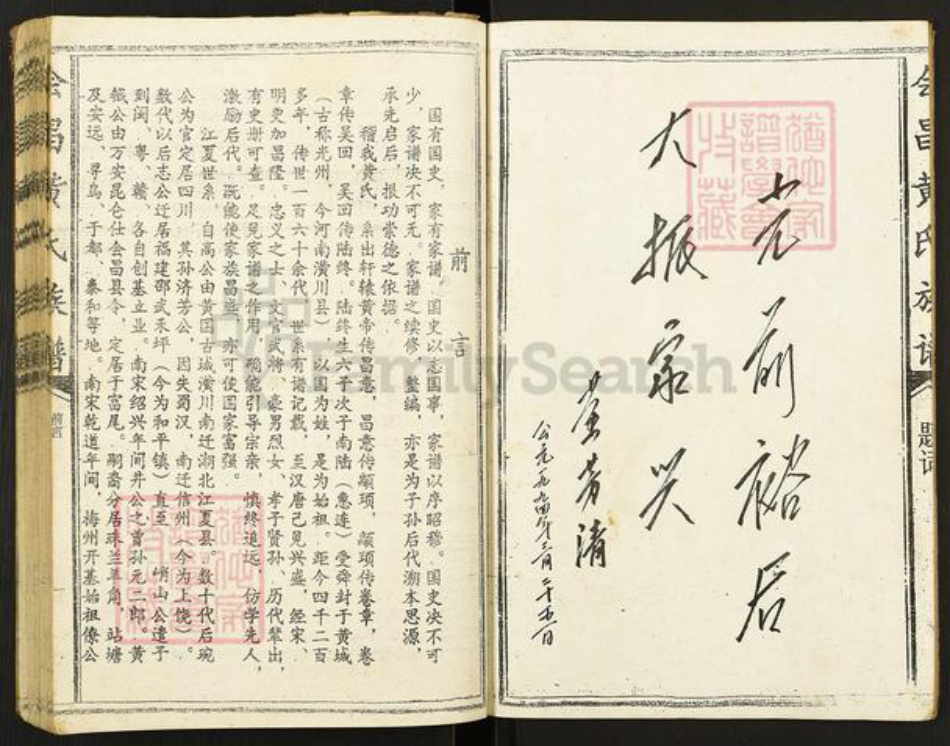 会昌黄氏族谱
题词
光前裕后
大振家兴
黄芳清
公元一九九四年三月二十五日
前言
国有国史，家有家谱。国史以志国事，家谱以序昭穆。国史决不可
少，家谱决不可无。家谱之续修，整编，亦是为子孙后代溯本思源，
承先启后，报功崇德之依据。
稽我黄氏，系出轩辕黄帝传昌意，昌意传颛顼，颛顼传卷章，卷
章传吴回，吴回传陆终。陆终生六子次子南陆（惠连）受舜封于黄城
（古称光州，今河南潢川县），以国为姓，是为始祖。距今四千二百
多年，传世一百六十余代，世系有谱记载，至汉唐已见兴盛，经宋、
明更加昌隆。忠义之士、文官武将、豪男烈女、孝子贤孙、历代辈出，
有史册可查。足见家谱之作用，确能引导宗亲，慎终追远，仿学先人，
激励后代。既能使家族昌盛，亦可使国家富强。
江夏世系，自高公由黄国古城潢川南迁湖北江夏县。数十代后琬
公为官定居四川，其孙济芳公，因失蜀汉，南迁信州（今为上饶）。
数代以后志公迁居福建邵武禾坪（今为和平镇）直至峭山公遣子
到闽、粤、赣，各自创基立业。南宋绍兴年间井公之曾孙元二郎。黄
钺公由万安昆仑仕会昌县令，定居于富尾。嗣裔分居珠兰羊角，站塘
及安远、寻乌、于都、泰和等地。南宋乾道年间，梅州开基始祖僚公
会昌黄氏族谱
前言
FamilySearch